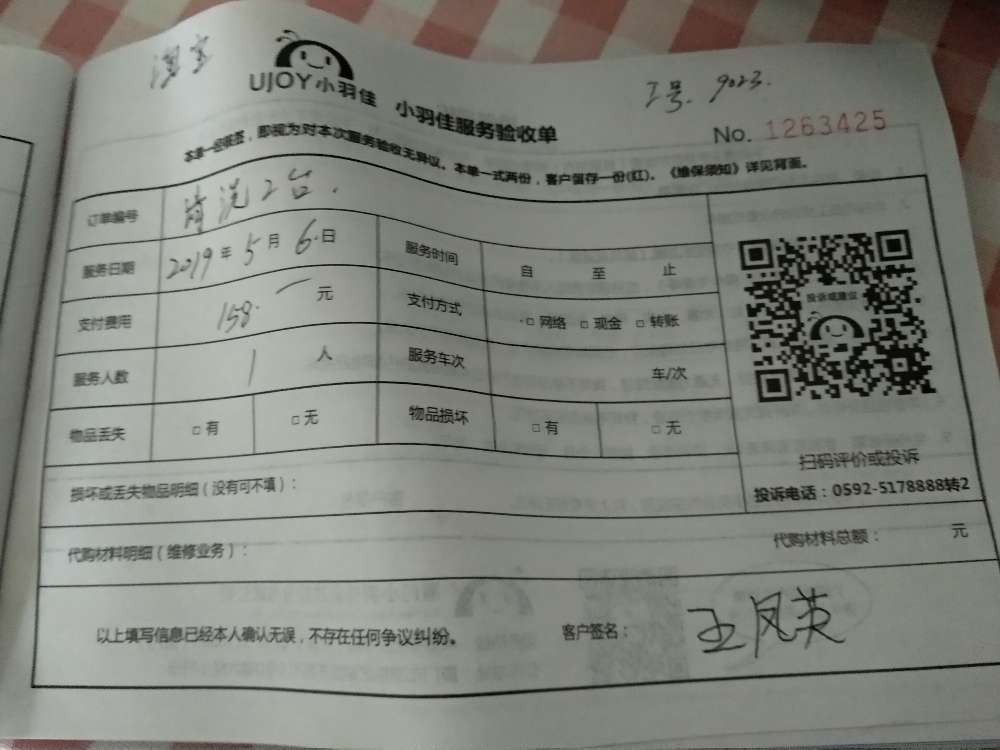 淘宝
UJOY小羽佳 小羽佳服务验收单
工号. 9023.
No. 1263425
本单一经核签，即视为对本次服务验收无异议。本单一式两份，客户留存一份(红)。《维保须知》详见背面。
订单编号 清洗2台.
服务日期 2019年5月6.日 服务时间 自 至 止
支付费用 158.一 元 支付方式 □网络 □现金 □转账
服务人数 1 人 服务车次 车/次
物品丢失 □有 □无 物品损坏 □有 □无
投诉或建议
扫码评价或投诉
投诉电话：0592-5178888转2
损坏或丢失物品明细（没有可不填）：
代购材料明细（维修业务）： 代购材料总额： 元
以上填写信息已经本人确认无误，不存在任何争议纠纷。 客户签名： 王凤英